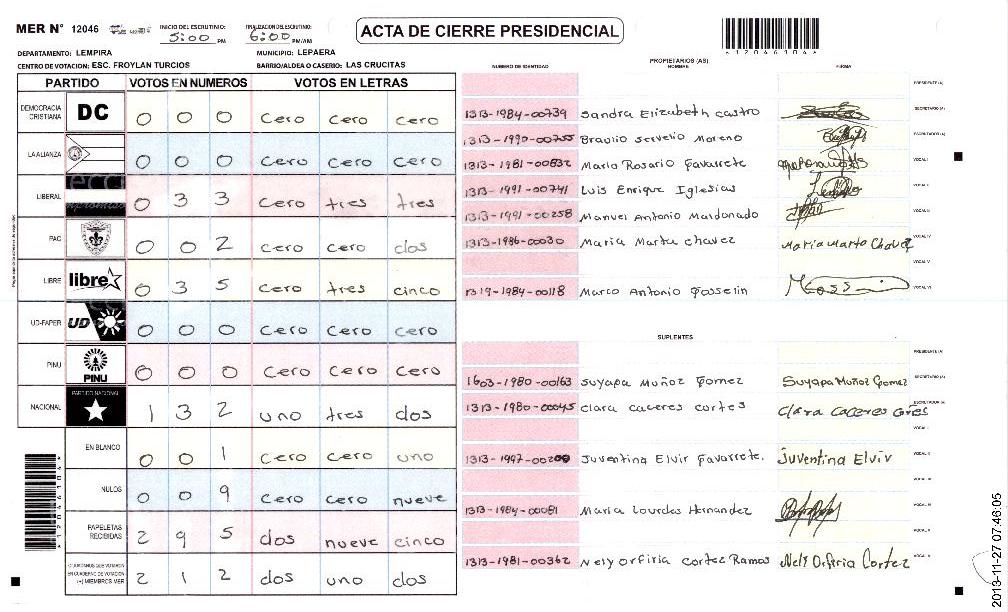 MER N° 12046 INICIO DEL ESCRUTINIO: 5:00 PM FINALIZACION DEL ESCRUTINIO: 6:00 PM/AM
ACTA DE CIERRE PRESIDENCIAL
DEPARTAMENTO: LEMPIRA MUNICIPIO: LEPAERA
CENTRO DE VOTACION: ESC. FROYLAN TURCIOS BARRIO/ALDEA O CASERIO: LAS CRUCITAS
PARTIDO VOTOS EN NUMEROS VOTOS EN LETRAS
DEMOCRACIA CRISTIANA DC 0 0 0 cero cero cero
LA ALIANZA 0 0 0 cero cero cero
LIBERAL 0 3 3 cero tres tres
PAC 0 0 2 cero cero dos
LIBRE libre 0 3 5 cero tres cinco
UD-FAPER UD 0 0 0 cero cero cero
PINU PINU 0 0 0 cero cero cero
NACIONAL PARTIDO NACIONAL 1 3 2 uno tres dos
EN BLANCO 0 0 1 cero cero uno
NULOS 0 0 9 cero cero nueve
PAPELETAS RECIBIDAS 2 9 5 dos nueve cinco
CIUDADANOS QUE VOTARON EN CUADERNO DE VOTACION (+) MIEMBROS MER 2 1 2 dos uno dos
PROPIETARIOS (AS)
NUMERO DE IDENTIDAD NOMBRE FIRMA
PRESIDENTE (A)
1313-1984-00739 Sandra Elizabeth castro SECRETARIO (A)
1313-1990-00755 Braulio servelio Moreno ESCRUTADOR (A)
1313-1981-00832 Mario Rosario Navarrete VOCAL I
1313-1991-00741 Luis Enrique Iglesias VOCAL II
1313-1991-00258 Manuel Antonio Maldonado VOCAL III
1313-1986-00030 Maria Marta chavez Maria Marta Chavez VOCAL IV
VOCAL V
1319-1984-00118 Marco Antonio Gosselin VOCAL VI
SUPLENTES
PRESIDENTE (A)
1603-1980-00163 Suyapa Muñoz Gomez Suyapa Muñoz Gomez SECRETARIO (A)
1313-1980-00045 Clara caceres cortes Clara caceres ESCRUTADOR (A)
VOCAL I
1313-1997-00200 Juventina Elvir Navarrete. Juventina Elvir VOCAL II
VOCAL III
1313-1984-00081 Maria Lourdes Hernandez VOCAL IV
VOCAL V
1313-1981-00362 Nely Orfiria cortez Ramos Nely Orfiria Cortez VOCAL VI
2013-11-27 07:46:05